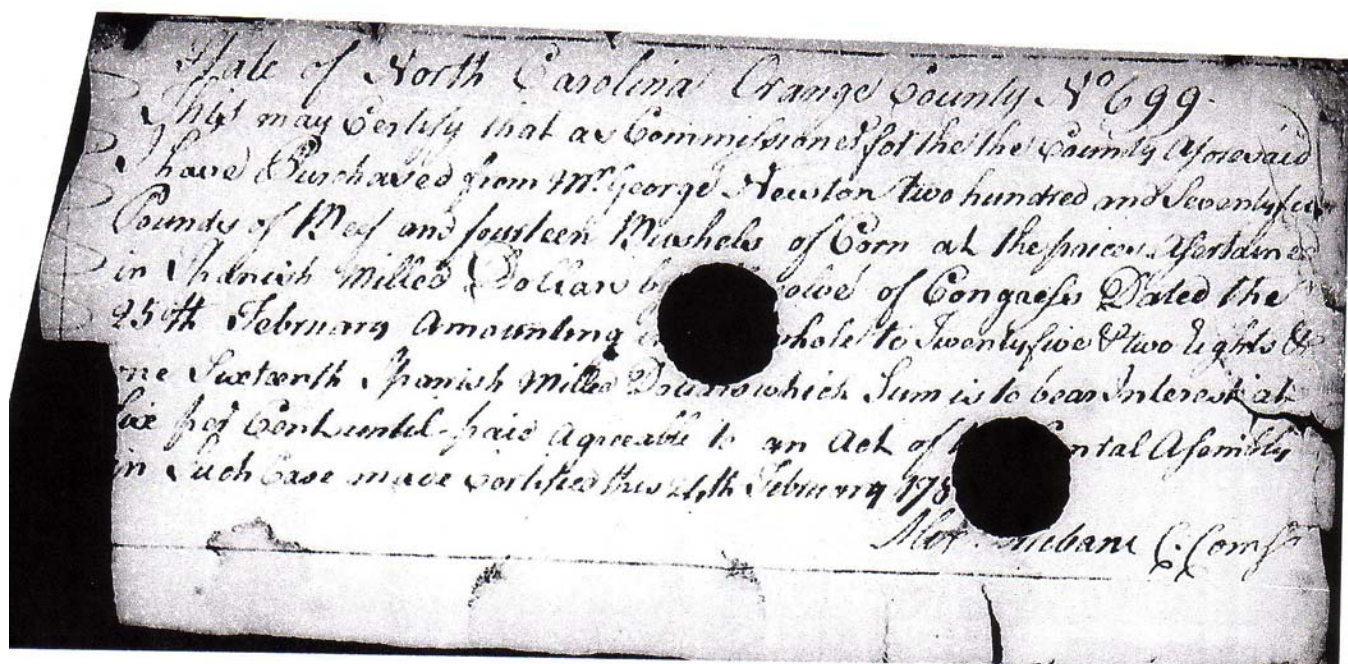 State of North Carolina Orange County No 699.
This may Certify that as Commissioner for the the County Aforesaid
I have Purchased from Mr. George Newton two hundred and Seventy
Pounds of Beef and fourteen Bushels of Corn at the prices Asertained
in Spanish Milled Dollars by olve of Congress Dated the
25th February Amounting in whole to Twenty five & two Eights &
one Sixteenth Spanish Milled Dollars which Sum is to bear Interest at
Six per Cent until paid Agreeable to an Act of ental Assembly
in Such Case made Certified this 24th February 178
Mebane C. Comsr